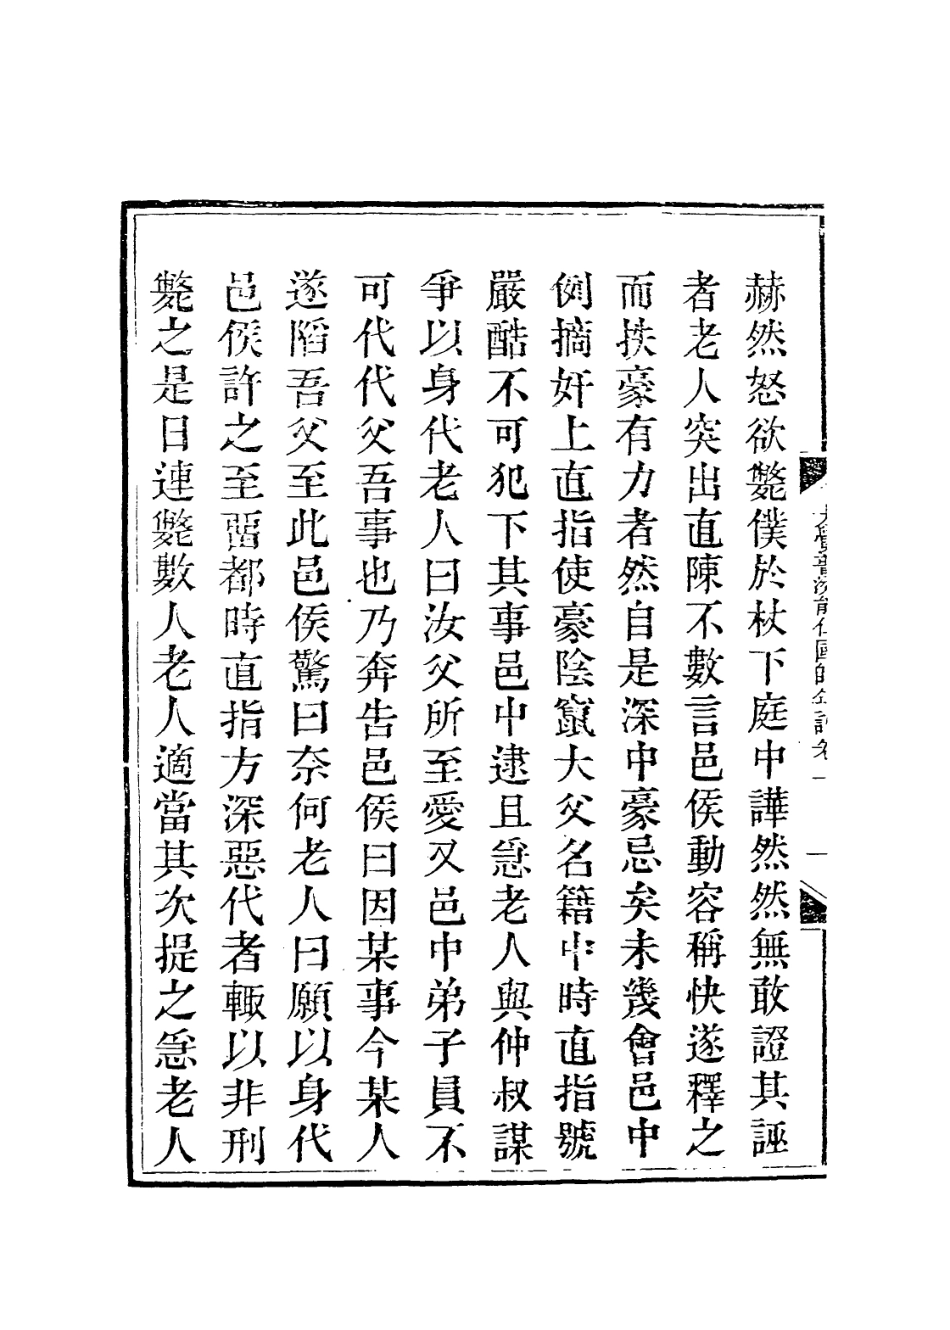 赫然怒欲斃僕於杖下庭中譁然然無敢證其誣
者老人突出直陳不數言邑侯動容稱快遂釋之
而抶豪有力者然自是深中豪忌矣未幾會邑中
例摘奸上直指使豪陰竄大父名籍中時直指號
嚴酷不可犯下其事邑中逮且急老人與仲叔謀
爭以身代老人曰汝父所至愛又邑中弟子員不
可代代父吾事也乃奔告邑侯曰因某事今某人
遂陷吾父至此邑侯驚曰奈何老人曰願以身代
邑侯許之至畱都時直指方深惡代者輙以非刑
斃之是日連斃數人老人適當其次提之急老人
大覺普濟能仁國師年譜卷一